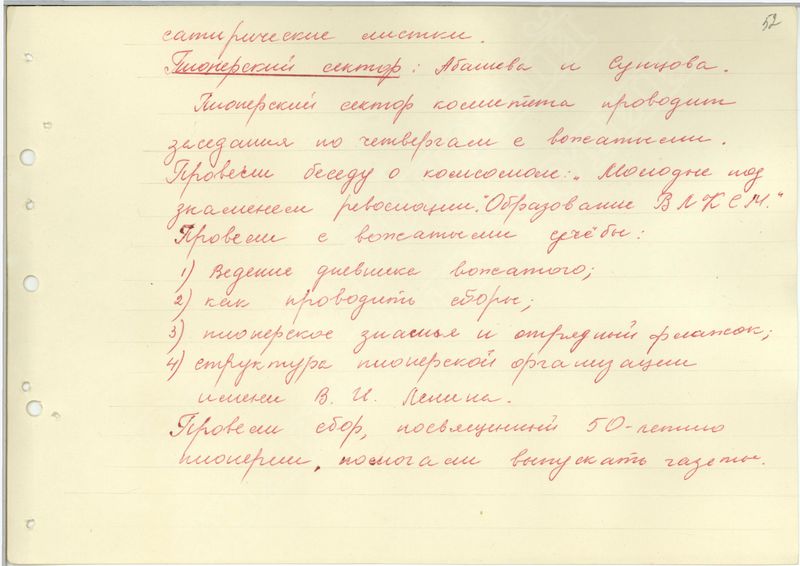 52
сатирические листки.
Пионерский сектор: Абашева и Сунцова.
Пионерский сектор комитета проводит
заседания по четвергам с вожатыми.
Провели беседу о комсомоле: „Молодые под
знаменем революции." Образование ВЛКСМ."
Провели с вожатыми учёбы:
1) Ведение дневника вожатого;
2) как проводить сборы;
3) пионерское знамя и отрядный флажок;
4) структура пионерской организации
имени В. И. Ленина.
Провели сбор, посвященный 50-летию
пионерии, помогали выпускать газеты.